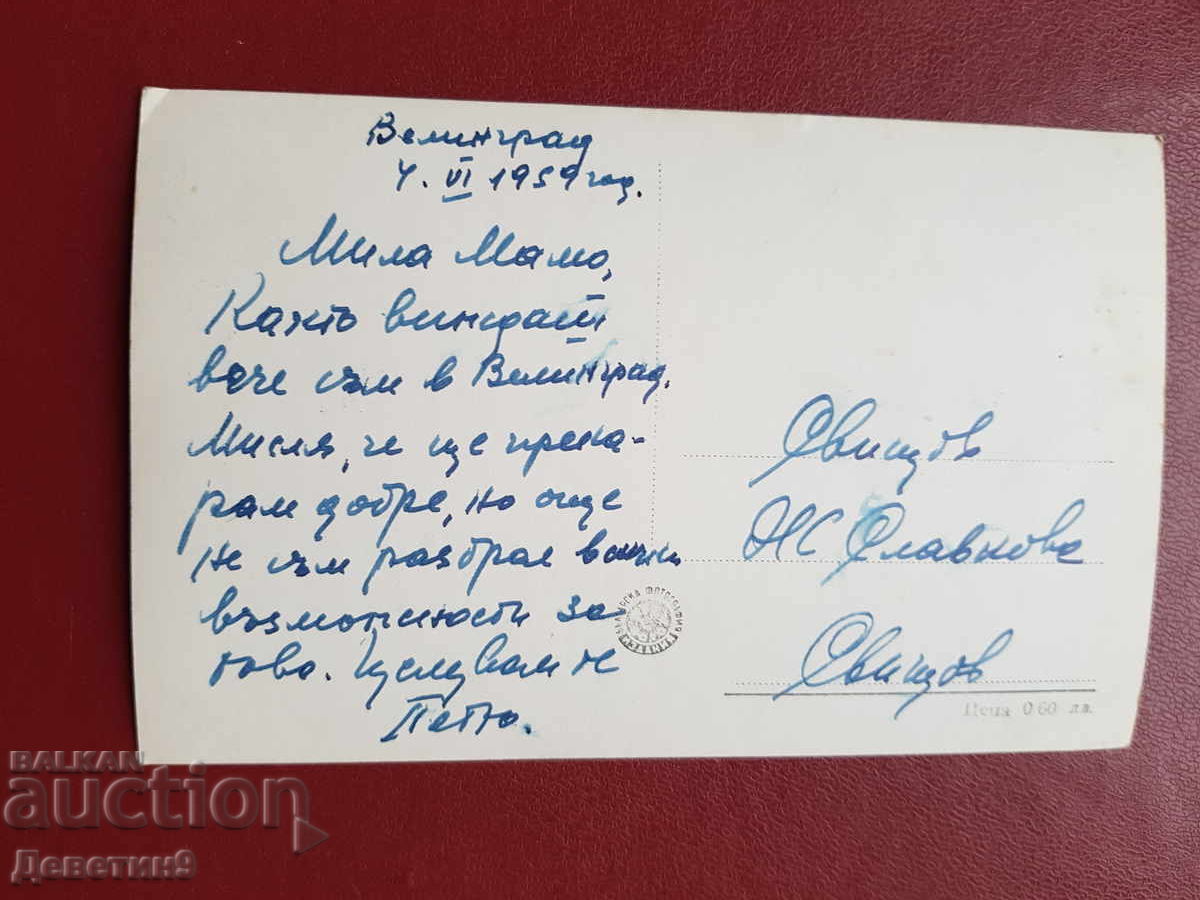 Велинград
4. VI 1959 год.
Мила Мамо,
Както виждаш
вече съм в Велинград.
Мисля, че ще прека-
рам добре, но още
не съм разбрал всички
възможности за
това. Целувам те
Петю.
Свищов
ЖС Славкова
Свищов
БЪЛГАРСКА ФОТОГРАФИЯ
Цена 0.60 лв.
BALKAN
auction
Деветин9